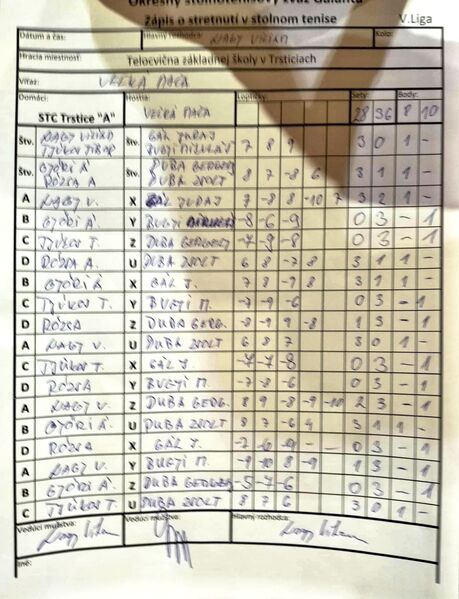 Okresný stolnotenisový zväz Galanta
Zápis o stretnutí v stolnom tenise V.Liga
Dátum a čas: Hlavný rozhodca: NAGY VILIAM Kolo:
Hracia miestnosť: Telocvična základnej školy v Trsticiach
Víťaz: VEĽKÁ MAČA
Domáci: Hostia: Loptičky: Sety: Body:
STC Trstice "A" VEĽKÁ MAČA 28 36 8 10
Štv. NAGY VILIAM Štv. GÁL JURAJ 7 8 9 3 0 1 -
TJÚKOS TIBOR BUGYI MIKULÁŠ
Štv. GYŐRI Á Štv. DUBA GERGELY 8 7 -8 6 3 1 1 -
RÓZSA A. DUBA ZSOLT
A NAGY V. X GÁL JURAJ 7 -8 8 -10 7 3 2 1 -
B GYŐRI Á. Y BUGYI -8 -6 -9 0 3 - 1
C TJÚKOS T. Z DUBA GERGELY -7 -9 -8 0 3 - 1
D RÓZSA A. U DUBA ZSOLT 6 8 -7 8 3 1 1 -
B GYŐRI Á X GÁL J. 7 8 -9 8 3 1 1 -
C TJÚKOS T. Y BUGYI M. -7 -9 -6 0 3 - 1
D RÓZSA Z DUBA GERG. -8 -9 9 -8 1 3 - 1
A NAGY V. U DUBA ZSOLT 6 8 7 3 0 1 -
C TJÚKOS T X GÁL J -7 -7 -8 0 3 - 1
D RÓZSA Y BUGYI M. -7 -8 -6 0 3 - 1
A NAGY V. Z DUBA GERG. 8 9 -8 -9 -10 2 3 - 1
B GYŐRI Á. U DUBA ZSOLT 8 7 -6 4 3 1 1 -
D RÓZSA X GÁL J. -7 -6 0 3 - 1
A NAGY V. Y BUGYI M. -9 -10 8 -9 1 3 - 1
B GYŐRI Á Z DUBA GERGELY -5 -7 -6 0 3 - 1
C TJÚKOS T. U DUBA ZSOLT 8 7 6 3 0 1 -
Vedúci mužstva: Vedúci mužstva: Hlavný rozhodca:
Iné: